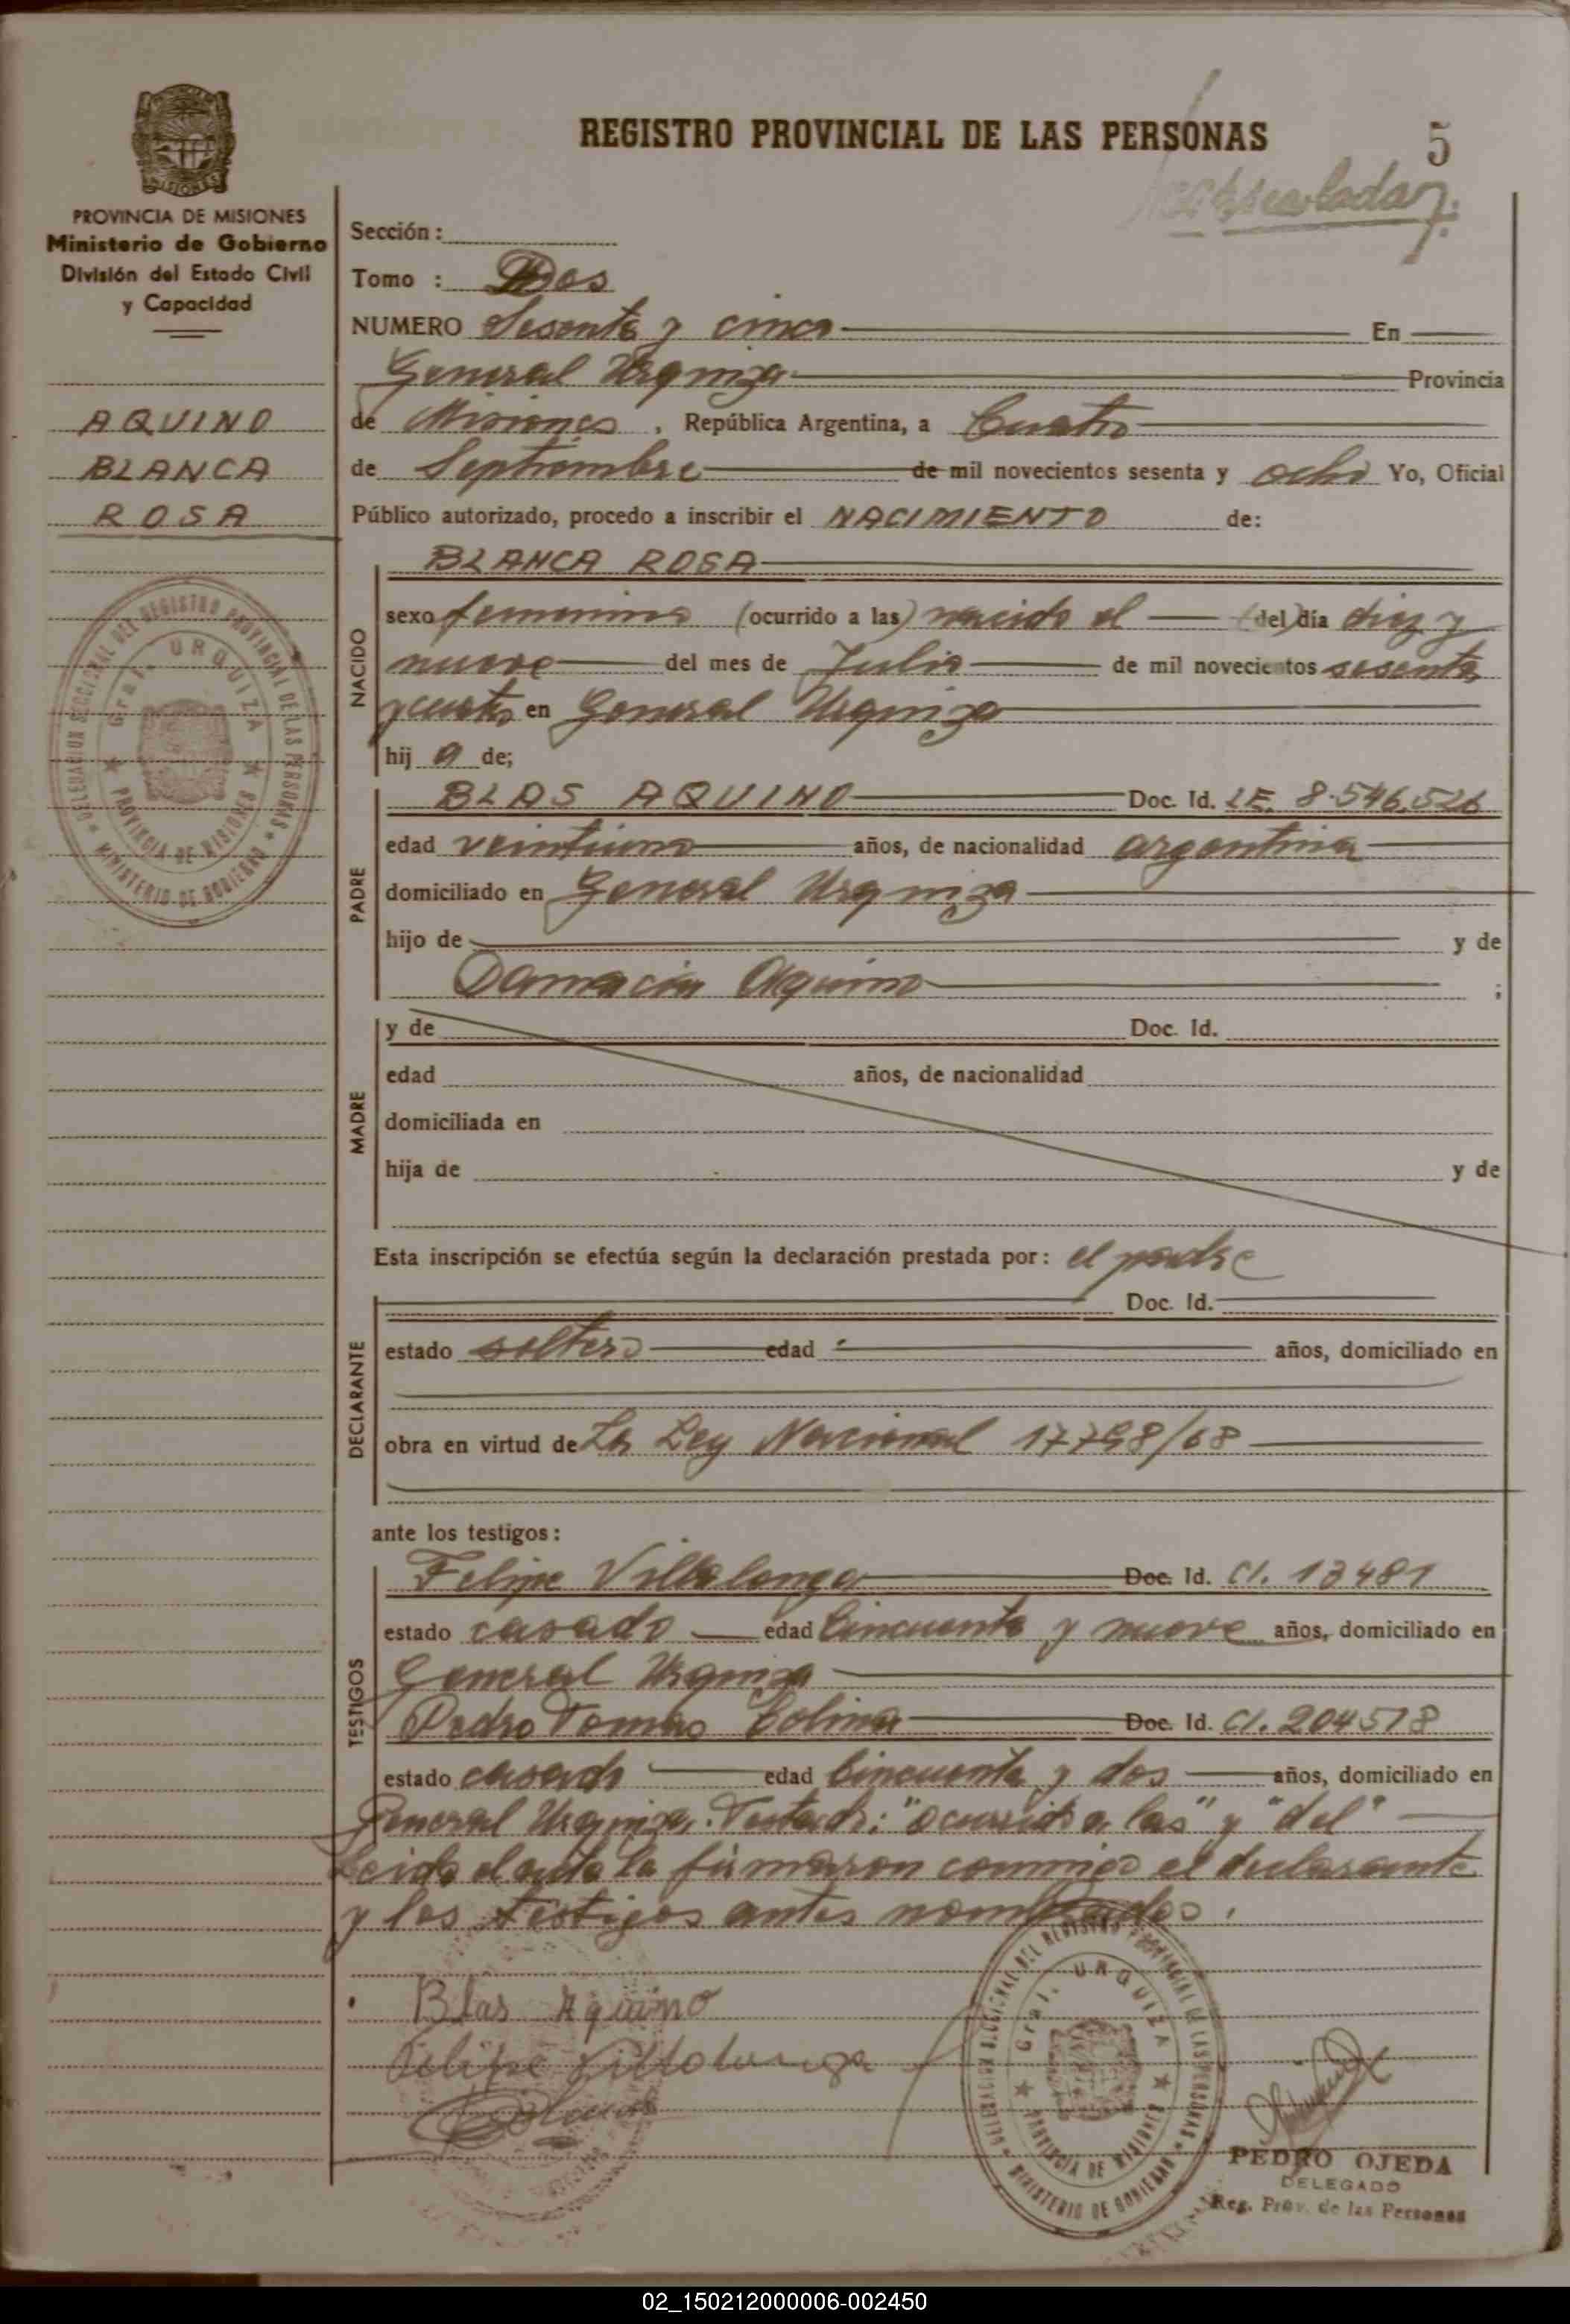 REGISTRO PROVINCIAL DE LAS PERSONAS
5
PROVINCIA DE MISIONES
Ministerio de Gobierno
División del Estado Civil
y Capacidad
AQUINO
BLANCA
ROSA
DELEGACION SECCIONAL DEL REGISTRO PROVINCIAL DE LAS PERSONAS
Gral. URQUIZA
PROVINCIA DE MISIONES
MINISTERIO DE GOBIERNO
Sección :
Tomo : Dos
NUMERO Sesenta y cinco En
General Urquiza Provincia
de Misiones , República Argentina, a Cuatro
de Septiembre de mil novecientos sesenta y ocho Yo, Oficial
Público autorizado, procedo a inscribir el NACIMIENTO de:
NACIDO
BLANCA ROSA
sexo femenino (ocurrido a las) nacido el (del) día diez y
nueve del mes de Julio de mil novecientos sesenta
y cuatro en General Urquiza
hij a de;
PADRE
BLAS AQUINO Doc. Id. LE. 8.546.526
edad veintiuno años, de nacionalidad argentina
domiciliado en General Urquiza
hijo de y de
Damacia Aquino ;
MADRE
y de Doc. Id.
edad años, de nacionalidad
domiciliada en
hija de y de
Esta inscripción se efectúa según la declaración prestada por: el padre
DECLARANTE
Doc. Id.
estado soltero edad años, domiciliado en
obra en virtud de La Ley Nacional 17798/68
ante los testigos:
TESTIGOS
Felipe Villalonga Doc. Id. CI. 13481
estado casado edad Cincuenta y nueve años, domiciliado en
General Urquiza
Pedro Tomas Colina Doc. Id. CI. 204578
estado casado edad Cincuenta y dos años, domiciliado en
General Urquiza. Testado: "ocurrido a las" y "del"
Leida el acta la firmaron conmigo el declarante
y los testigos antes nombrados.
Blas Aquino
Felipe Villalonga
DELEGACION SECCIONAL DEL REGISTRO PROVINCIAL DE LAS PERSONAS
Gral. URQUIZA
PROVINCIA DE MISIONES
MINISTERIO DE GOBIERNO
PEDRO OJEDA
DELEGADO
Reg. Prov. de las Personas
02_150212000006-002450